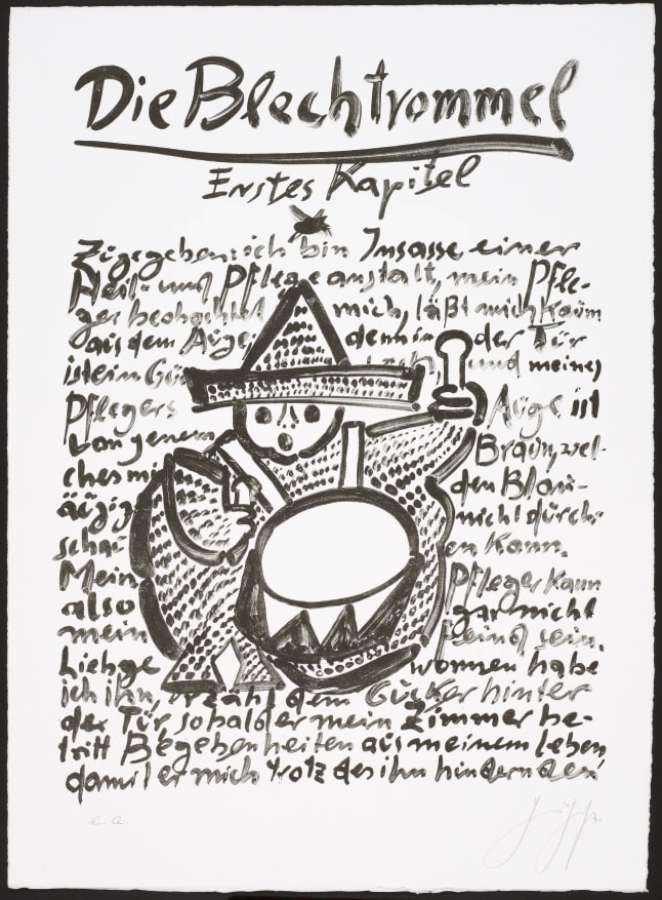 Die Blechtrommel
Erstes Kapitel
Zugegeben: ich bin Insasse einer
Heil- und Pflegeanstalt, mein Pfle-
ger beobachtet mich, läßt mich kaum
aus dem Auge denn in der Tür
ist ein Guc und meines
Pflegers Auge ist
von jenem Braun, wel-
ches mi den Blau-
äugig nicht durch-
schau en kann.
Mein Pfleger kann
also gar nicht
mein Feind sein.
Liebge wonnen habe
ich ihn, erzähl dem Gucker hinter
der Tür, sobald er mein Zimmer be-
tritt Begebenheiten aus meinem Leben
damit er mich trotz des ihn hindernden
e. a.